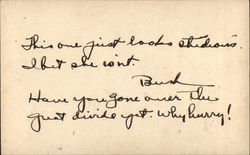 This one just looks studious.
I bet she isn't
Bush
Have you gone over the
great divide yet. Why hurry!